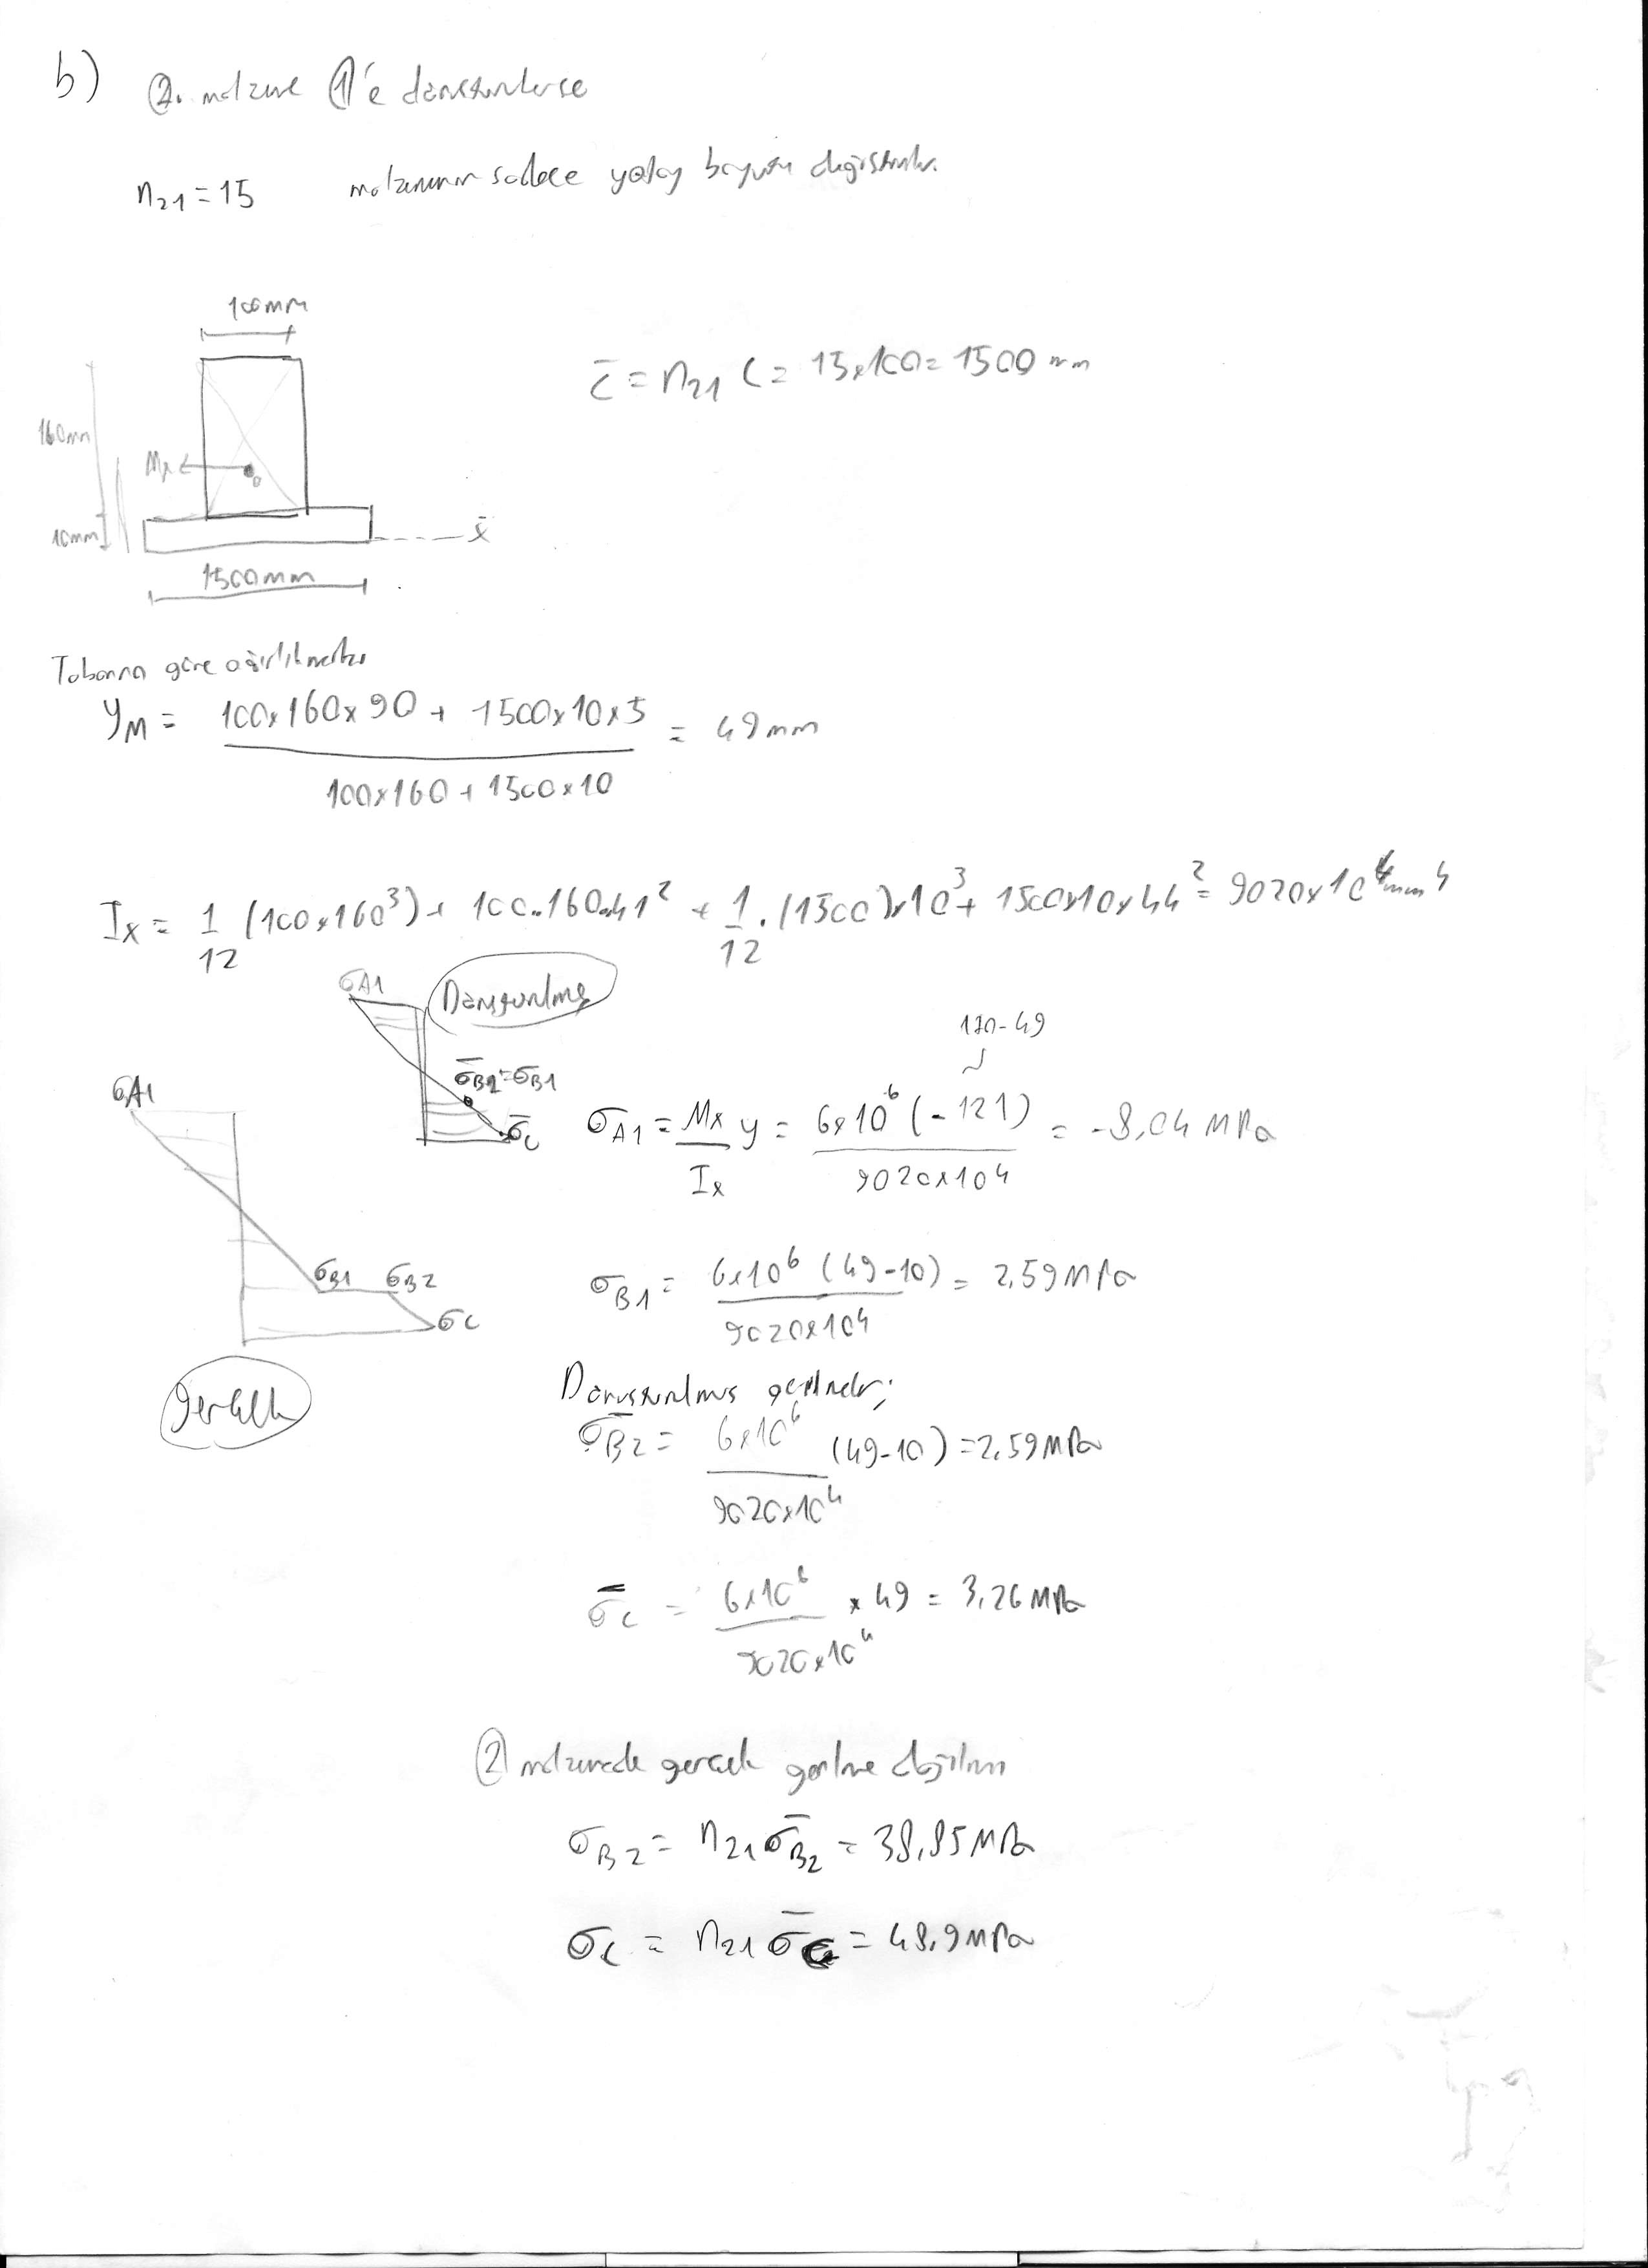 b) ②. malzeme ①'e dönüştürülürse
n21 = 15 malzemenin sadece yatay boyutu değiştirilir.
100mm
c̄ = n21 c = 15x100 = 1500 mm
160mm
Mx
10mm
x̄
1500mm
Tabana göre ağırlık merkezi
yM = (100x160x90 + 1500x10x5) / (100x160 + 1500x10) = 49mm
Ix = 1/12 (100x160³) + 100.160.41² + 1/12 . (1500)x10³ + 1500x10x44² = 9020x10⁴ mm⁴
σA1 Dönüştürülmüş
170-49
σ̄B2 = σB1
σ̄C
σA1
σA1 = Mx/Ix y = 6x10⁶ (-121) / 9020x10⁴ = -8,04 MPa
σB1 σB2
σC
σB1 = 6x10⁶ (49-10) / 9020x10⁴ = 2,59 MPa
Gerçek
Dönüştürülmüş gerilmeler;
σ̄B2 = 6x10⁶ / 9020x10⁴ (49-10) = 2,59 MPa
σ̄C = 6x10⁶ / 9020x10⁴ x 49 = 3,26 MPa
② malzemede gerçek gerilme dağılımı
σB2 = n21 σ̄B2 = 38,85 MPa
σC = n21 σ̄C = 48,9 MPa